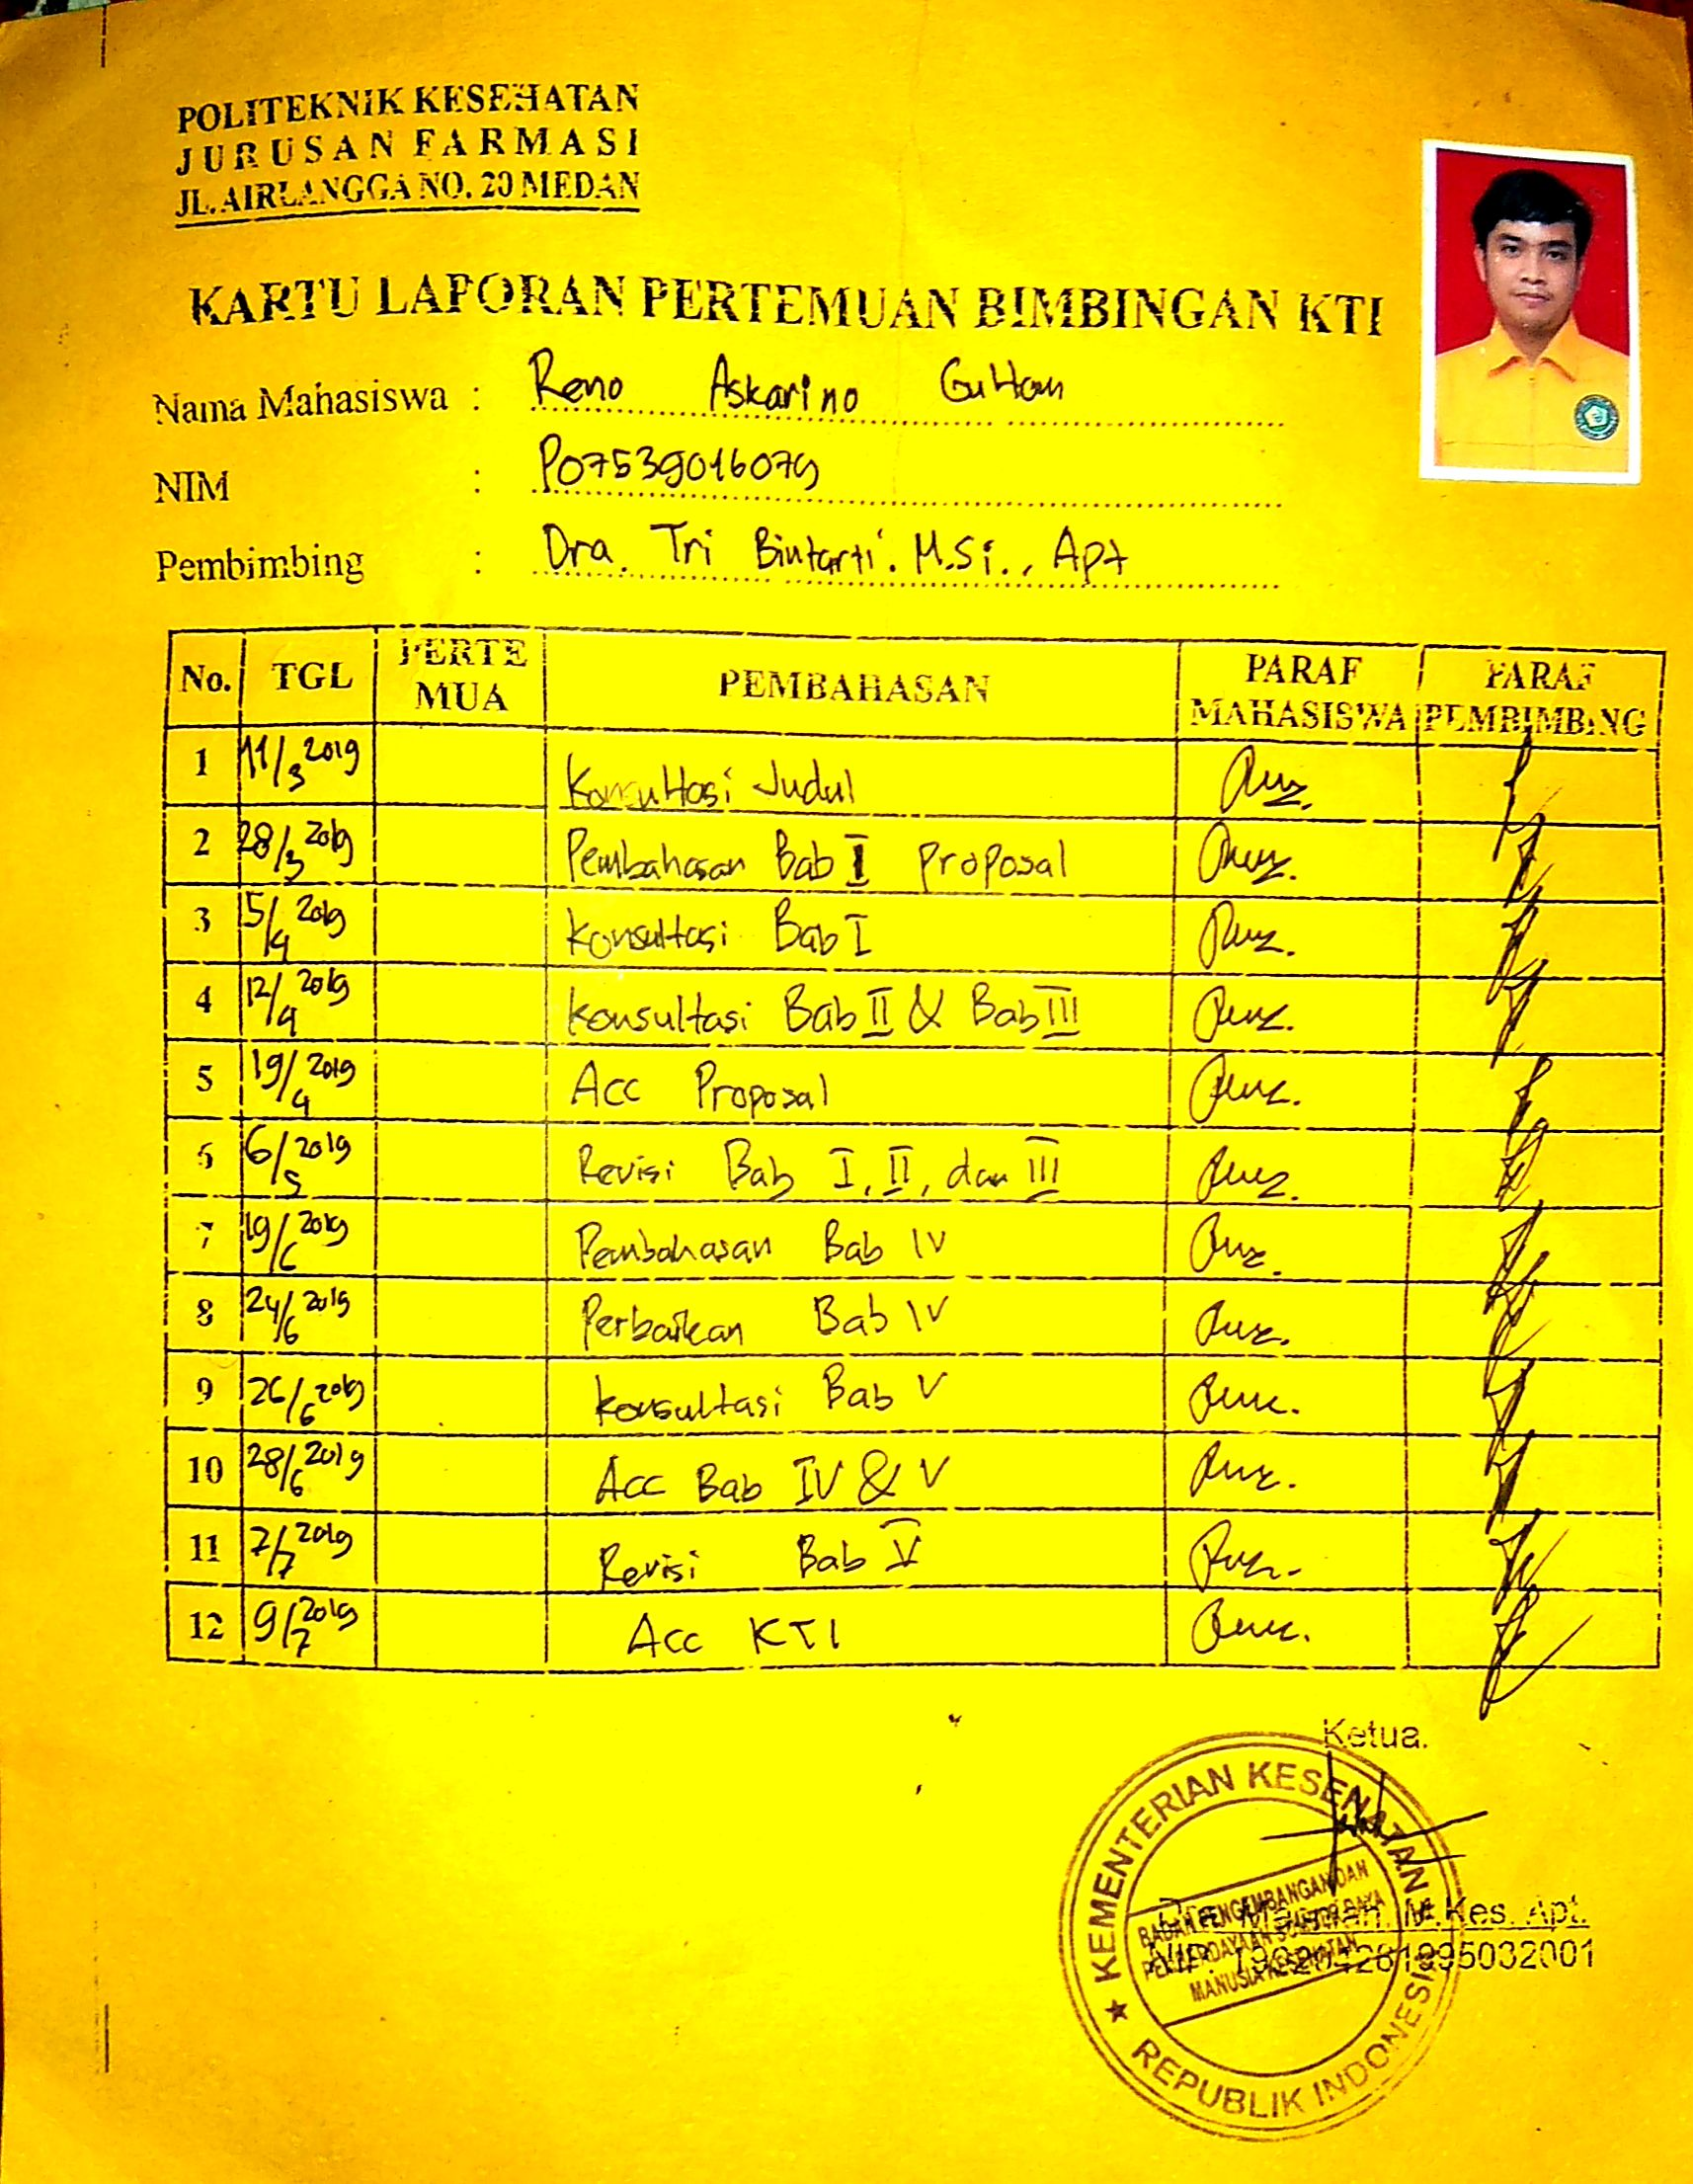 POLITEKNIK KESEHATAN
JURUSAN FARMASI
JL. AIRLANGGA NO. 20 MEDAN
KARTU LAPORAN PERTEMUAN BIMBINGAN KTI
Nama Mahasiswa : Reno Askarino Gultom
NIM : P07539016079
Pembimbing : Dra. Tri Bintarti. M.Si., Apt
No. TGL PERTE MUA PEMBAHASAN PARAF MAHASISWA PARAF PEMBIMBING
1 11/3 2019 Konsultasi Judul
2 28/3 2019 Pembahasan Bab I Proposal
3 5/4 2019 Konsultasi Bab I
4 12/4 2019 Konsultasi Bab II & Bab III
5 19/4 2019 Acc Proposal
6 6/5 2019 Revisi Bab I, II, dan III
7 19/6 2019 Pembahasan Bab IV
8 24/6 2019 Perbaikan Bab IV
9 26/6 2019 Konsultasi Bab V
10 28/6 2019 Acc Bab IV & V
11 2/7 2019 Revisi Bab V
12 9/7 2019 Acc KTI
Ketua.
M.Kes. Apt.
NIP.
KEMENTERIAN KESEHATAN
BADAN PENGEMBANGAN DAN
PEMBERDAYAAN SUMBER DAYA
MANUSIA KESEHATAN
REPUBLIK INDONESIA